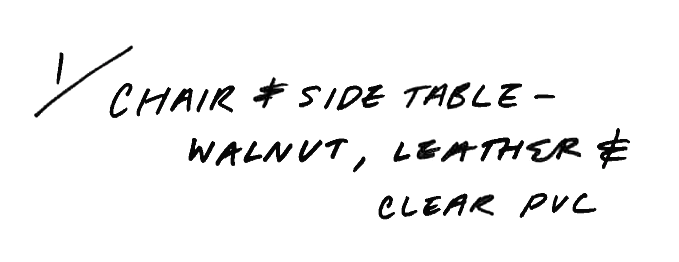 1/ CHAIR & SIDE TABLE -
WALNUT, LEATHER &
CLEAR PVC